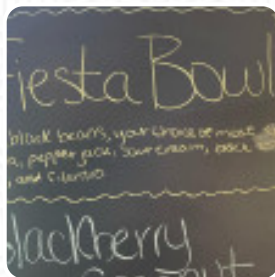 Fiesta Bowl
black beans, your choice of meat
pepper jack, sour cream,
and cilantro
blackberry